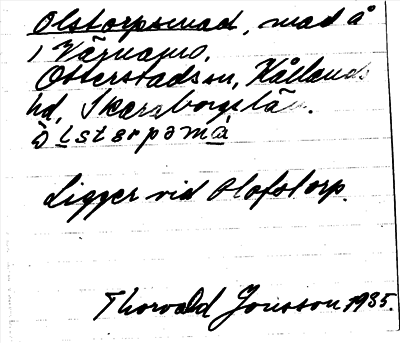 Olstorpsmad, mad å
i Värnamo,
Otterstadsn, Kållands
hd, Skaraborgs län.
Ligger vid Olofstorp.
Thorvald Jonsson 1935.